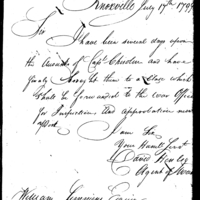 Knoxville July 17th 1797
Sir
I have been several days upon
the accounts of Capt. Chisolm and have
finaly brought them to a Close which
shall be forwarded to the War Office
for Inspection, and approbation
I am Sir
Your Humbl. Servt
David Henley
Agent of War
William Simmons Esquire